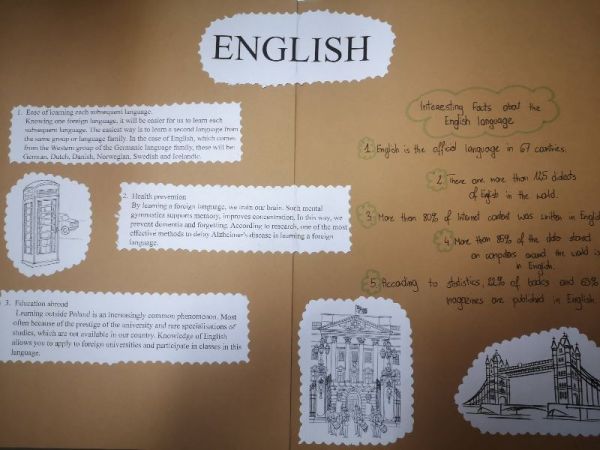 ENGLISH
1. Ease of learning each subsequent language.
Knowing one foreign language, it will be easier for us to learn each
subsequent language. The easiest way is to learn a second language from
the same group or language family. In the case of English, which comes
from the Western group of the Germanic language family, these will be:
German, Dutch, Danish, Norwegian, Swedish and Icelandic.
2. Health prevention
By learning a foreign language, we train our brain. Such mental
gymnastics supports memory, improves concentration. In this way, we
prevent dementia and forgetting. According to research, one of the most
effective methods to delay Alzheimer's disease is learning a foreign
language.
3. Education abroad
Learning outside Poland is an increasingly common phenomenon. Most
often because of the prestige of the university and rare specialisations of
studies, which are not available in our country. Knowledge of English
allows you to apply to foreign universities and participate in classes in this
language.
Interesting Facts about the
English language
1. English is the official language in 67 countries.
2. There are more than 125 dialects
of English in the world.
3. More than 80% of Internet content was written in English
4. More than 85% of the data stored
on computers around the world is
in English.
5. According to statistics, 22% of books and
magazines are published in English